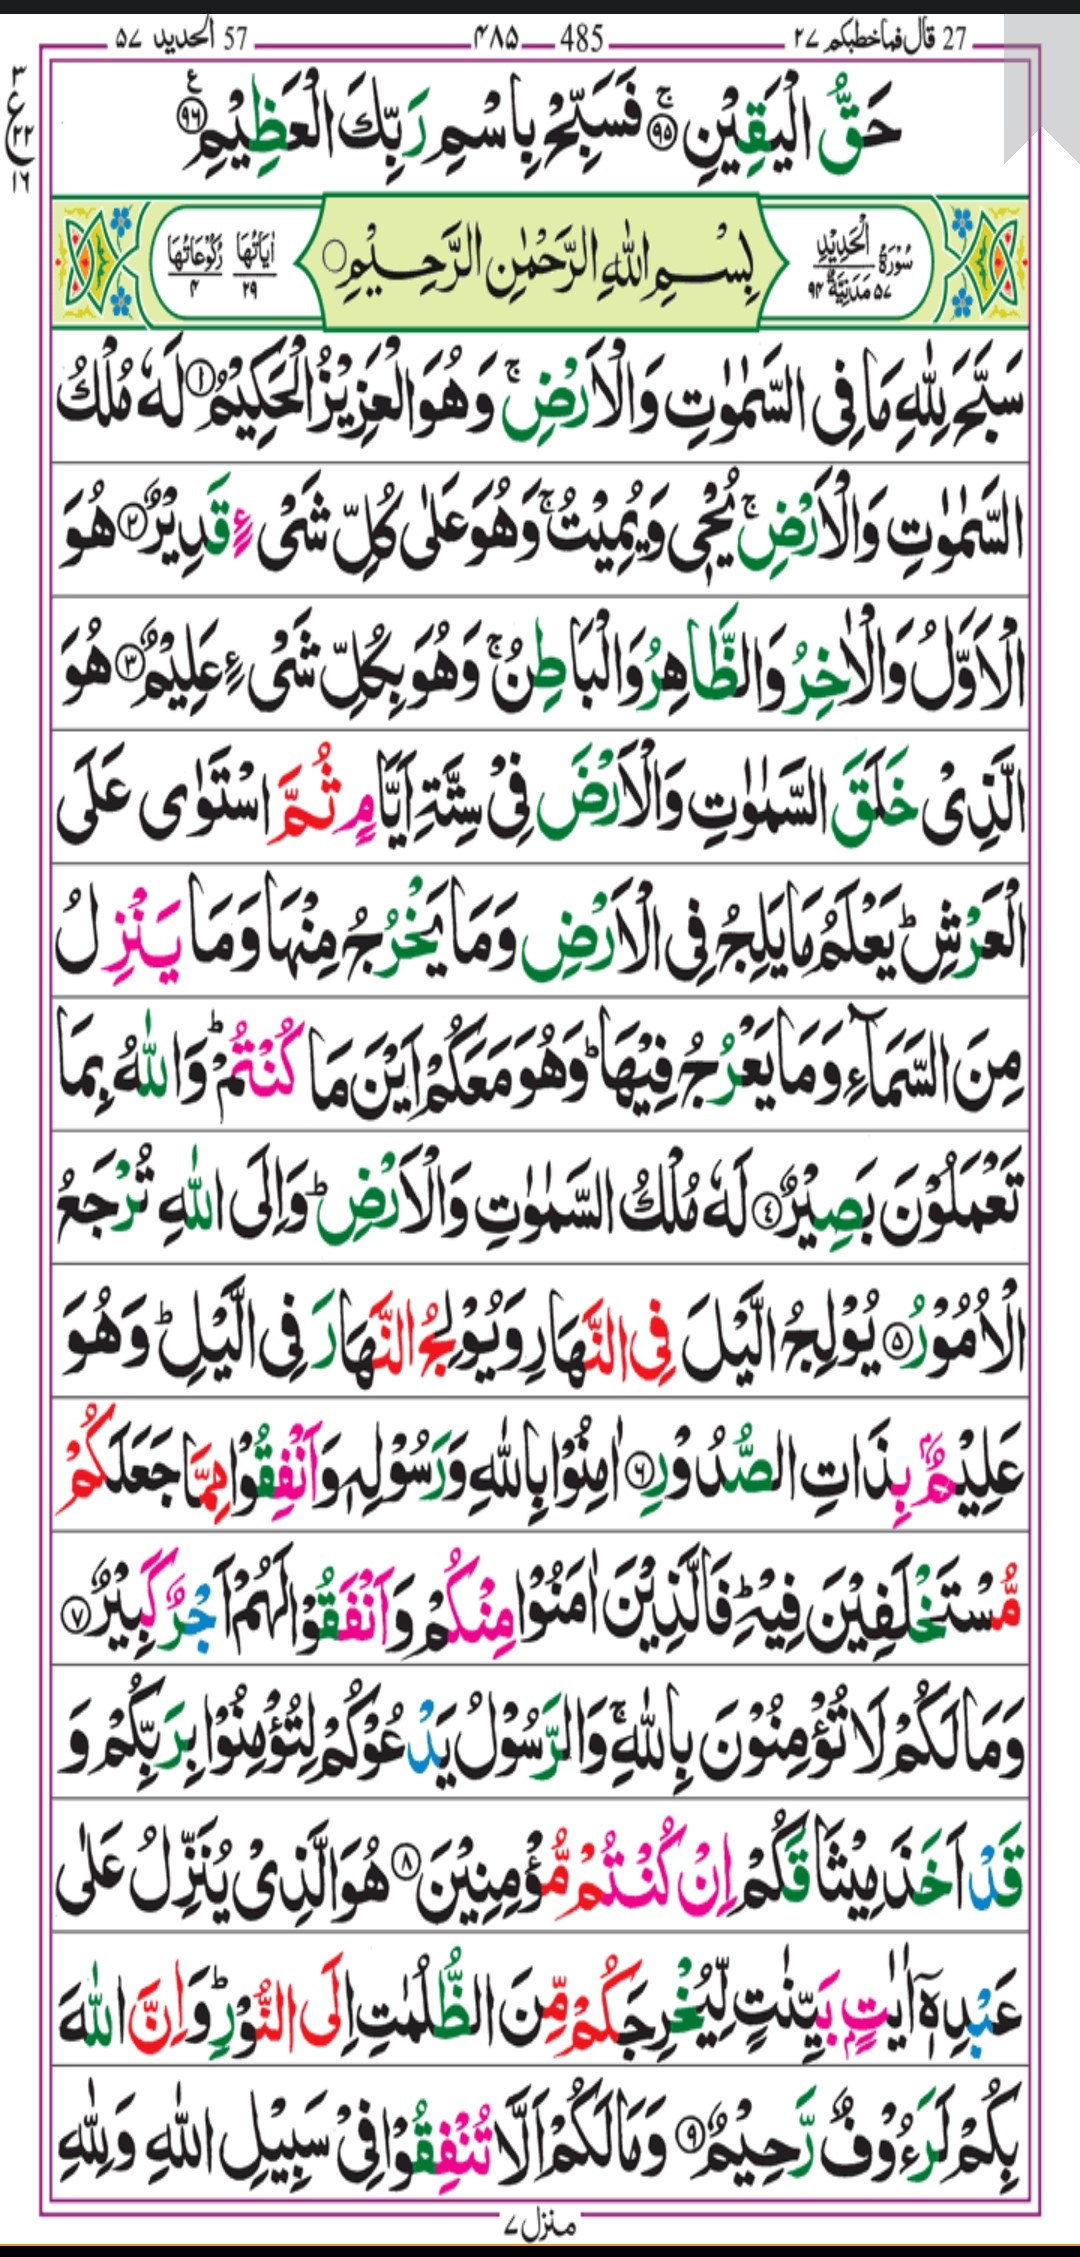 27 قال فما خطبكم ۲۷ 485 ۴۸۵ 57 الحدید ۵۷
۳
ع
۲۲
۱٦
حَقُّ الْيَقِيْنِ ۚ‏﴿۹۵﴾ فَسَبِّحْ بِاسْمِ رَبِّكَ الْعَظِيْمِ ﴿۹٦﴾ ع
سُوْرَةُ الْحَدِيْدِ ۵۷ مَدَنِيَّةٌ ۹۴ بِسْمِ اللّٰهِ الرَّحْمٰنِ الرَّحِيْمِ اٰيَاتُهَا ۲۹ رُكُوْعَاتُهَا ۴
سَبَّحَ لِلّٰهِ مَا فِى السَّمٰوٰتِ وَالْاَرْضِ ۚ وَهُوَ الْعَزِيْزُ الْحَكِيْمُ ﴿۱﴾ لَهٗ مُلْكُ
السَّمٰوٰتِ وَالْاَرْضِ ۚ يُحْىٖ وَيُمِيْتُ ۚ وَهُوَ عَلٰى كُلِّ شَىْءٍ قَدِيْرٌ ﴿۲﴾ هُوَ
الْاَوَّلُ وَالْاٰخِرُ وَالظَّاهِرُ وَالْبَاطِنُ ۚ وَهُوَ بِكُلِّ شَىْءٍ عَلِيْمٌ ﴿۳﴾ هُوَ
الَّذِىْ خَلَقَ السَّمٰوٰتِ وَالْاَرْضَ فِىْ سِتَّةِ اَيَّامٍ ثُمَّ اسْتَوٰى عَلَى
الْعَرْشِ ؕ يَعْلَمُ مَا يَلِجُ فِى الْاَرْضِ وَمَا يَخْرُجُ مِنْهَا وَمَا يَنْزِلُ
مِنَ السَّمَآءِ وَمَا يَعْرُجُ فِيْهَا ؕ وَهُوَ مَعَكُمْ اَيْنَ مَا كُنْتُمْ ؕ وَاللّٰهُ بِمَا
تَعْمَلُوْنَ بَصِيْرٌ ﴿۴﴾ لَهٗ مُلْكُ السَّمٰوٰتِ وَالْاَرْضِ ؕ وَاِلَى اللّٰهِ تُرْجَعُ
الْاُمُوْرُ ﴿۵﴾ يُوْلِجُ الَّيْلَ فِى النَّهَارِ وَيُوْلِجُ النَّهَارَ فِى الَّيْلِ ؕ وَهُوَ
عَلِيْمٌۢ بِذَاتِ الصُّدُوْرِ ﴿٦﴾ اٰمِنُوْا بِاللّٰهِ وَرَسُوْلِهٖ وَاَنْفِقُوْا مِمَّا جَعَلَكُمْ
مُّسْتَخْلَفِيْنَ فِيْهِ ؕ فَالَّذِيْنَ اٰمَنُوْا مِنْكُمْ وَاَنْفَقُوْا لَهُمْ اَجْرٌ كَبِيْرٌ ﴿۷﴾
وَمَا لَكُمْ لَا تُؤْمِنُوْنَ بِاللّٰهِ ۚ وَالرَّسُوْلُ يَدْعُوْكُمْ لِتُؤْمِنُوْا بِرَبِّكُمْ وَ
قَدْ اَخَذَ مِيْثَاقَكُمْ اِنْ كُنْتُمْ مُّؤْمِنِيْنَ ﴿۸﴾ هُوَ الَّذِىْ يُنَزِّلُ عَلٰى
عَبْدِهٖۤ اٰيٰتٍۭ بَيِّنٰتٍ لِّيُخْرِجَكُمْ مِّنَ الظُّلُمٰتِ اِلَى النُّوْرِ ؕ وَاِنَّ اللّٰهَ
بِكُمْ لَرَءُوْفٌ رَّحِيْمٌ ﴿۹﴾ وَمَا لَكُمْ اَلَّا تُنْفِقُوْا فِىْ سَبِيْلِ اللّٰهِ وَلِلّٰهِ
منزل ۷